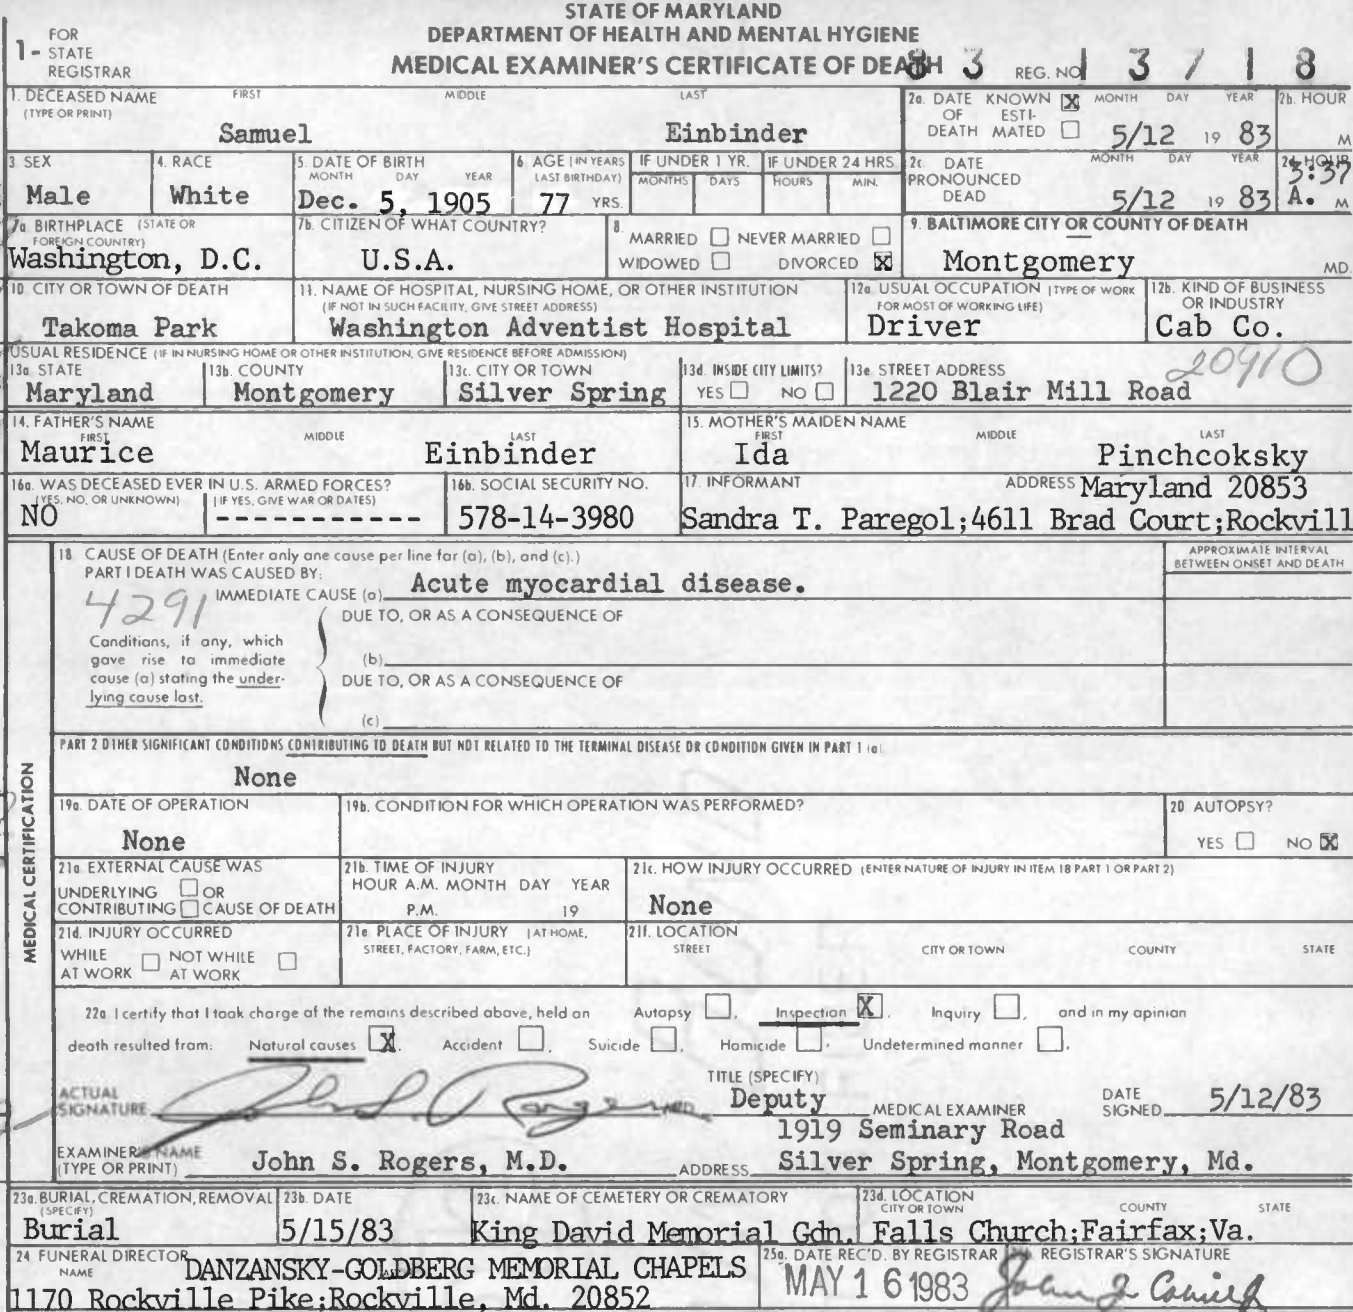 STATE OF MARYLAND
DEPARTMENT OF HEALTH AND MENTAL HYGIENE
MEDICAL EXAMINER'S CERTIFICATE OF DEATH
1- FOR STATE REGISTRAR
83 REG. NO. 13718
1. DECEASED NAME (TYPE OR PRINT) FIRST MIDDLE LAST
Samuel Einbinder
2a. DATE OF DEATH KNOWN X ESTIMATED MONTH DAY YEAR
5/12 19 83
2b. HOUR
M
3. SEX
Male
4. RACE
White
5. DATE OF BIRTH MONTH DAY YEAR
Dec. 5, 1905
6. AGE (IN YEARS LAST BIRTHDAY)
77 YRS.
IF UNDER 1 YR. MONTHS DAYS
IF UNDER 24 HRS HOURS MIN.
2c. DATE PRONOUNCED DEAD MONTH DAY YEAR
5/12 19 83
2d. HOUR
3:37 A. M
7a. BIRTHPLACE (STATE OR FOREIGN COUNTRY)
Washington, D.C.
7b. CITIZEN OF WHAT COUNTRY?
U.S.A.
8. MARRIED NEVER MARRIED
WIDOWED DIVORCED X
9. BALTIMORE CITY OR COUNTY OF DEATH
Montgomery MD.
10. CITY OR TOWN OF DEATH
Takoma Park
11. NAME OF HOSPITAL, NURSING HOME, OR OTHER INSTITUTION
(IF NOT IN SUCH FACILITY, GIVE STREET ADDRESS)
Washington Adventist Hospital
12a. USUAL OCCUPATION (TYPE OF WORK FOR MOST OF WORKING LIFE)
Driver
12b. KIND OF BUSINESS OR INDUSTRY
Cab Co.
USUAL RESIDENCE (IF IN NURSING HOME OR OTHER INSTITUTION, GIVE RESIDENCE BEFORE ADMISSION)
13a. STATE
Maryland
13b. COUNTY
Montgomery
13c. CITY OR TOWN
Silver Spring
13d. INSIDE CITY LIMITS?
YES NO
13e. STREET ADDRESS
20910
1220 Blair Mill Road
14. FATHER'S NAME FIRST MIDDLE LAST
Maurice Einbinder
15. MOTHER'S MAIDEN NAME FIRST MIDDLE LAST
Ida Pinchcoksky
16a. WAS DECEASED EVER IN U.S. ARMED FORCES?
(YES, NO, OR UNKNOWN) (IF YES, GIVE WAR OR DATES)
NO ------------
16b. SOCIAL SECURITY NO.
578-14-3980
17. INFORMANT ADDRESS Maryland 20853
Sandra T. Paregol;4611 Brad Court;Rockvill
MEDICAL CERTIFICATION
18. CAUSE OF DEATH (Enter only one cause per line for (a), (b), and (c).)
PART I DEATH WAS CAUSED BY:
APPROXIMATE INTERVAL BETWEEN ONSET AND DEATH
IMMEDIATE CAUSE (a) Acute myocardial disease.
4291
DUE TO, OR AS A CONSEQUENCE OF
Conditions, if any, which
gave rise to immediate
cause (a) stating the under-
lying cause last.
(b)
DUE TO, OR AS A CONSEQUENCE OF
(c)
PART 2 OTHER SIGNIFICANT CONDITIONS CONTRIBUTING TO DEATH BUT NOT RELATED TO THE TERMINAL DISEASE OR CONDITION GIVEN IN PART 1 (a)
None
19a. DATE OF OPERATION
None
19b. CONDITION FOR WHICH OPERATION WAS PERFORMED?
20 AUTOPSY?
YES NO X
21a EXTERNAL CAUSE WAS
UNDERLYING OR
CONTRIBUTING CAUSE OF DEATH
21b. TIME OF INJURY
HOUR A.M. MONTH DAY YEAR
P.M. 19
21c. HOW INJURY OCCURRED (ENTER NATURE OF INJURY IN ITEM 18 PART 1 OR PART 2)
None
21d. INJURY OCCURRED
WHILE AT WORK NOT WHILE AT WORK
21e PLACE OF INJURY (AT HOME, STREET, FACTORY, FARM, ETC.)
21f. LOCATION
STREET CITY OR TOWN COUNTY STATE
22a I certify that I took charge of the remains described above, held an Autopsy , Inspection X , Inquiry , and in my opinion
death resulted from: Natural causes X . Accident , Suicide , Homicide , Undetermined manner .
ACTUAL SIGNATURE John S. Rogers MD.
TITLE (SPECIFY)
Deputy MEDICAL EXAMINER
DATE SIGNED 5/12/83
EXAMINER'S NAME (TYPE OR PRINT) John S. Rogers, M.D.
1919 Seminary Road
ADDRESS Silver Spring, Montgomery, Md.
23a. BURIAL, CREMATION, REMOVAL (SPECIFY)
Burial
23b. DATE
5/15/83
23c. NAME OF CEMETERY OR CREMATORY
King David Memorial Gdn.
23d. LOCATION CITY OR TOWN COUNTY STATE
Falls Church;Fairfax;Va.
24 FUNERAL DIRECTOR NAME
DANZANSKY-GOLDBERG MEMORIAL CHAPELS
1170 Rockville Pike;Rockville, Md. 20852
25a. DATE REC'D. BY REGISTRAR
MAY 16 1983
REGISTRAR'S SIGNATURE
John J.